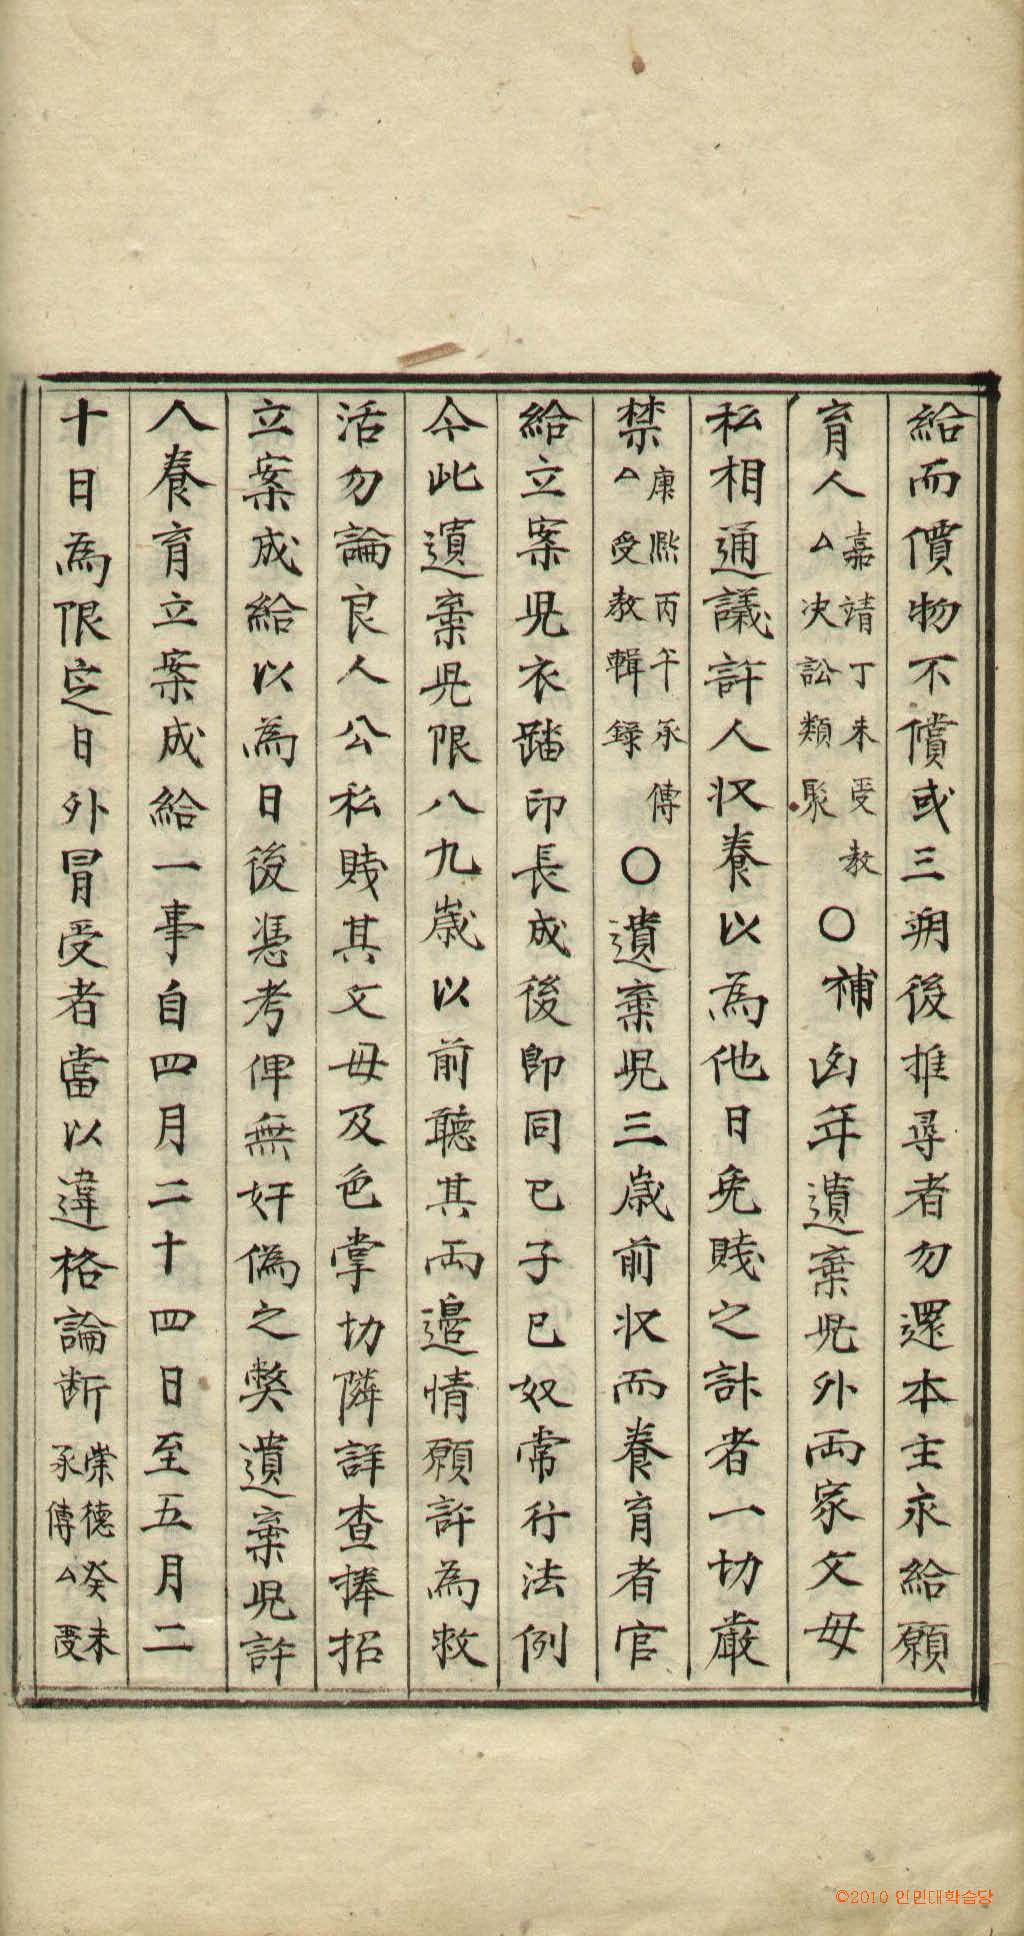 給而價物不償或三朔後推尋者勿還本主永給願
育人嘉靖丁未受教△决訟類聚〇補凶年遺棄児外兩家父母
私相通議許人収養以為他日免賤之計者一切嚴
禁康熙丙午承傳△受教輯録〇遺棄児三歲前収而養育者官
給立案児衣踏印長成後卽同己子己奴常行法例
今此遺棄児限八九歲以前聽其兩邉情願許為救
活勿論良人公私賤其父母及色掌切隣詳查捧招
立案成給以為日後憑考俾無奸偽之獘遺棄児許
人養育立案成給一事自四月二十四日至五月二
十日為限㝎日外冒受者當以違格論断崇德癸未承傳△受
©2010 인민대학습당